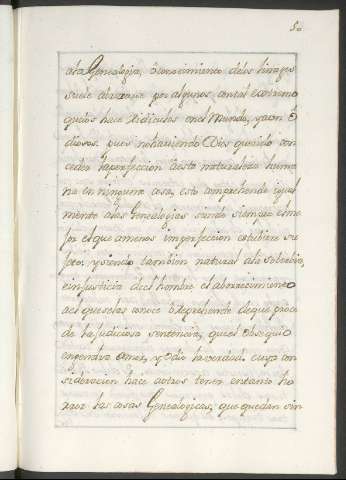 50
ala Genealogia, ò conocimiento delos linages
suele abrazarse por algunos, con tal extremo
quelos hace Ridiculos en el Mundo, y aun ô
diosos. pues no haviendo Dios querido con
ceder la perfeccion à esta naturaleza huma
na en ninguna cosa, esto comprehende igual
mente alas Genealogias siendo siempre el me
jor el que a menos imperfeccion estubiere su
geto. y siendo tambien natural ala Soberbia,
e injusticia del hombre el aborrecimiento
ael que selas conoce ò Reprehende de que proce
de la Judiciosa sentencia, que el obsequio
engendra amor, y odio la verdad. cuya con
sideracion hace a otros tener en tanto ho
rror las cosas Genealogicas, que quedan sin